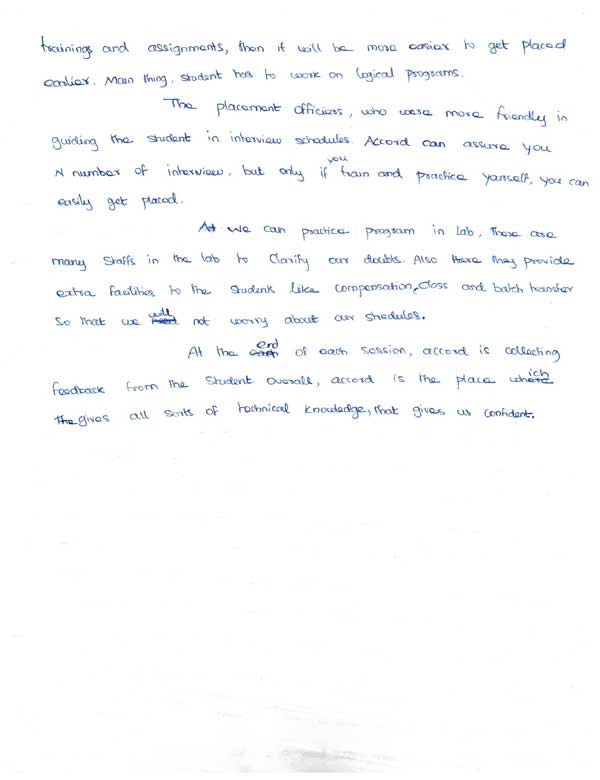 trainings and assignments, then it will be more easier to get placed
earlier. Main thing, student has to work on logical programs.
The placement officiers, who were more friendly in
guiding the student in interview schedules. Accord can assure you
N number of interview, but only if you train and practice yourself, you can
easily get placed.
At We can practice program in lab, there are
many staffs in the lab to clarify our doubts. Also there they provide
extra facilities to the students like compensation class and batch transfer
So that we will not worry about our shedules.
At the end of each session, accord is collecting
feedback from the student overall, accord is the place which
the gives all sorts of technical knowledge, that gives us confident.